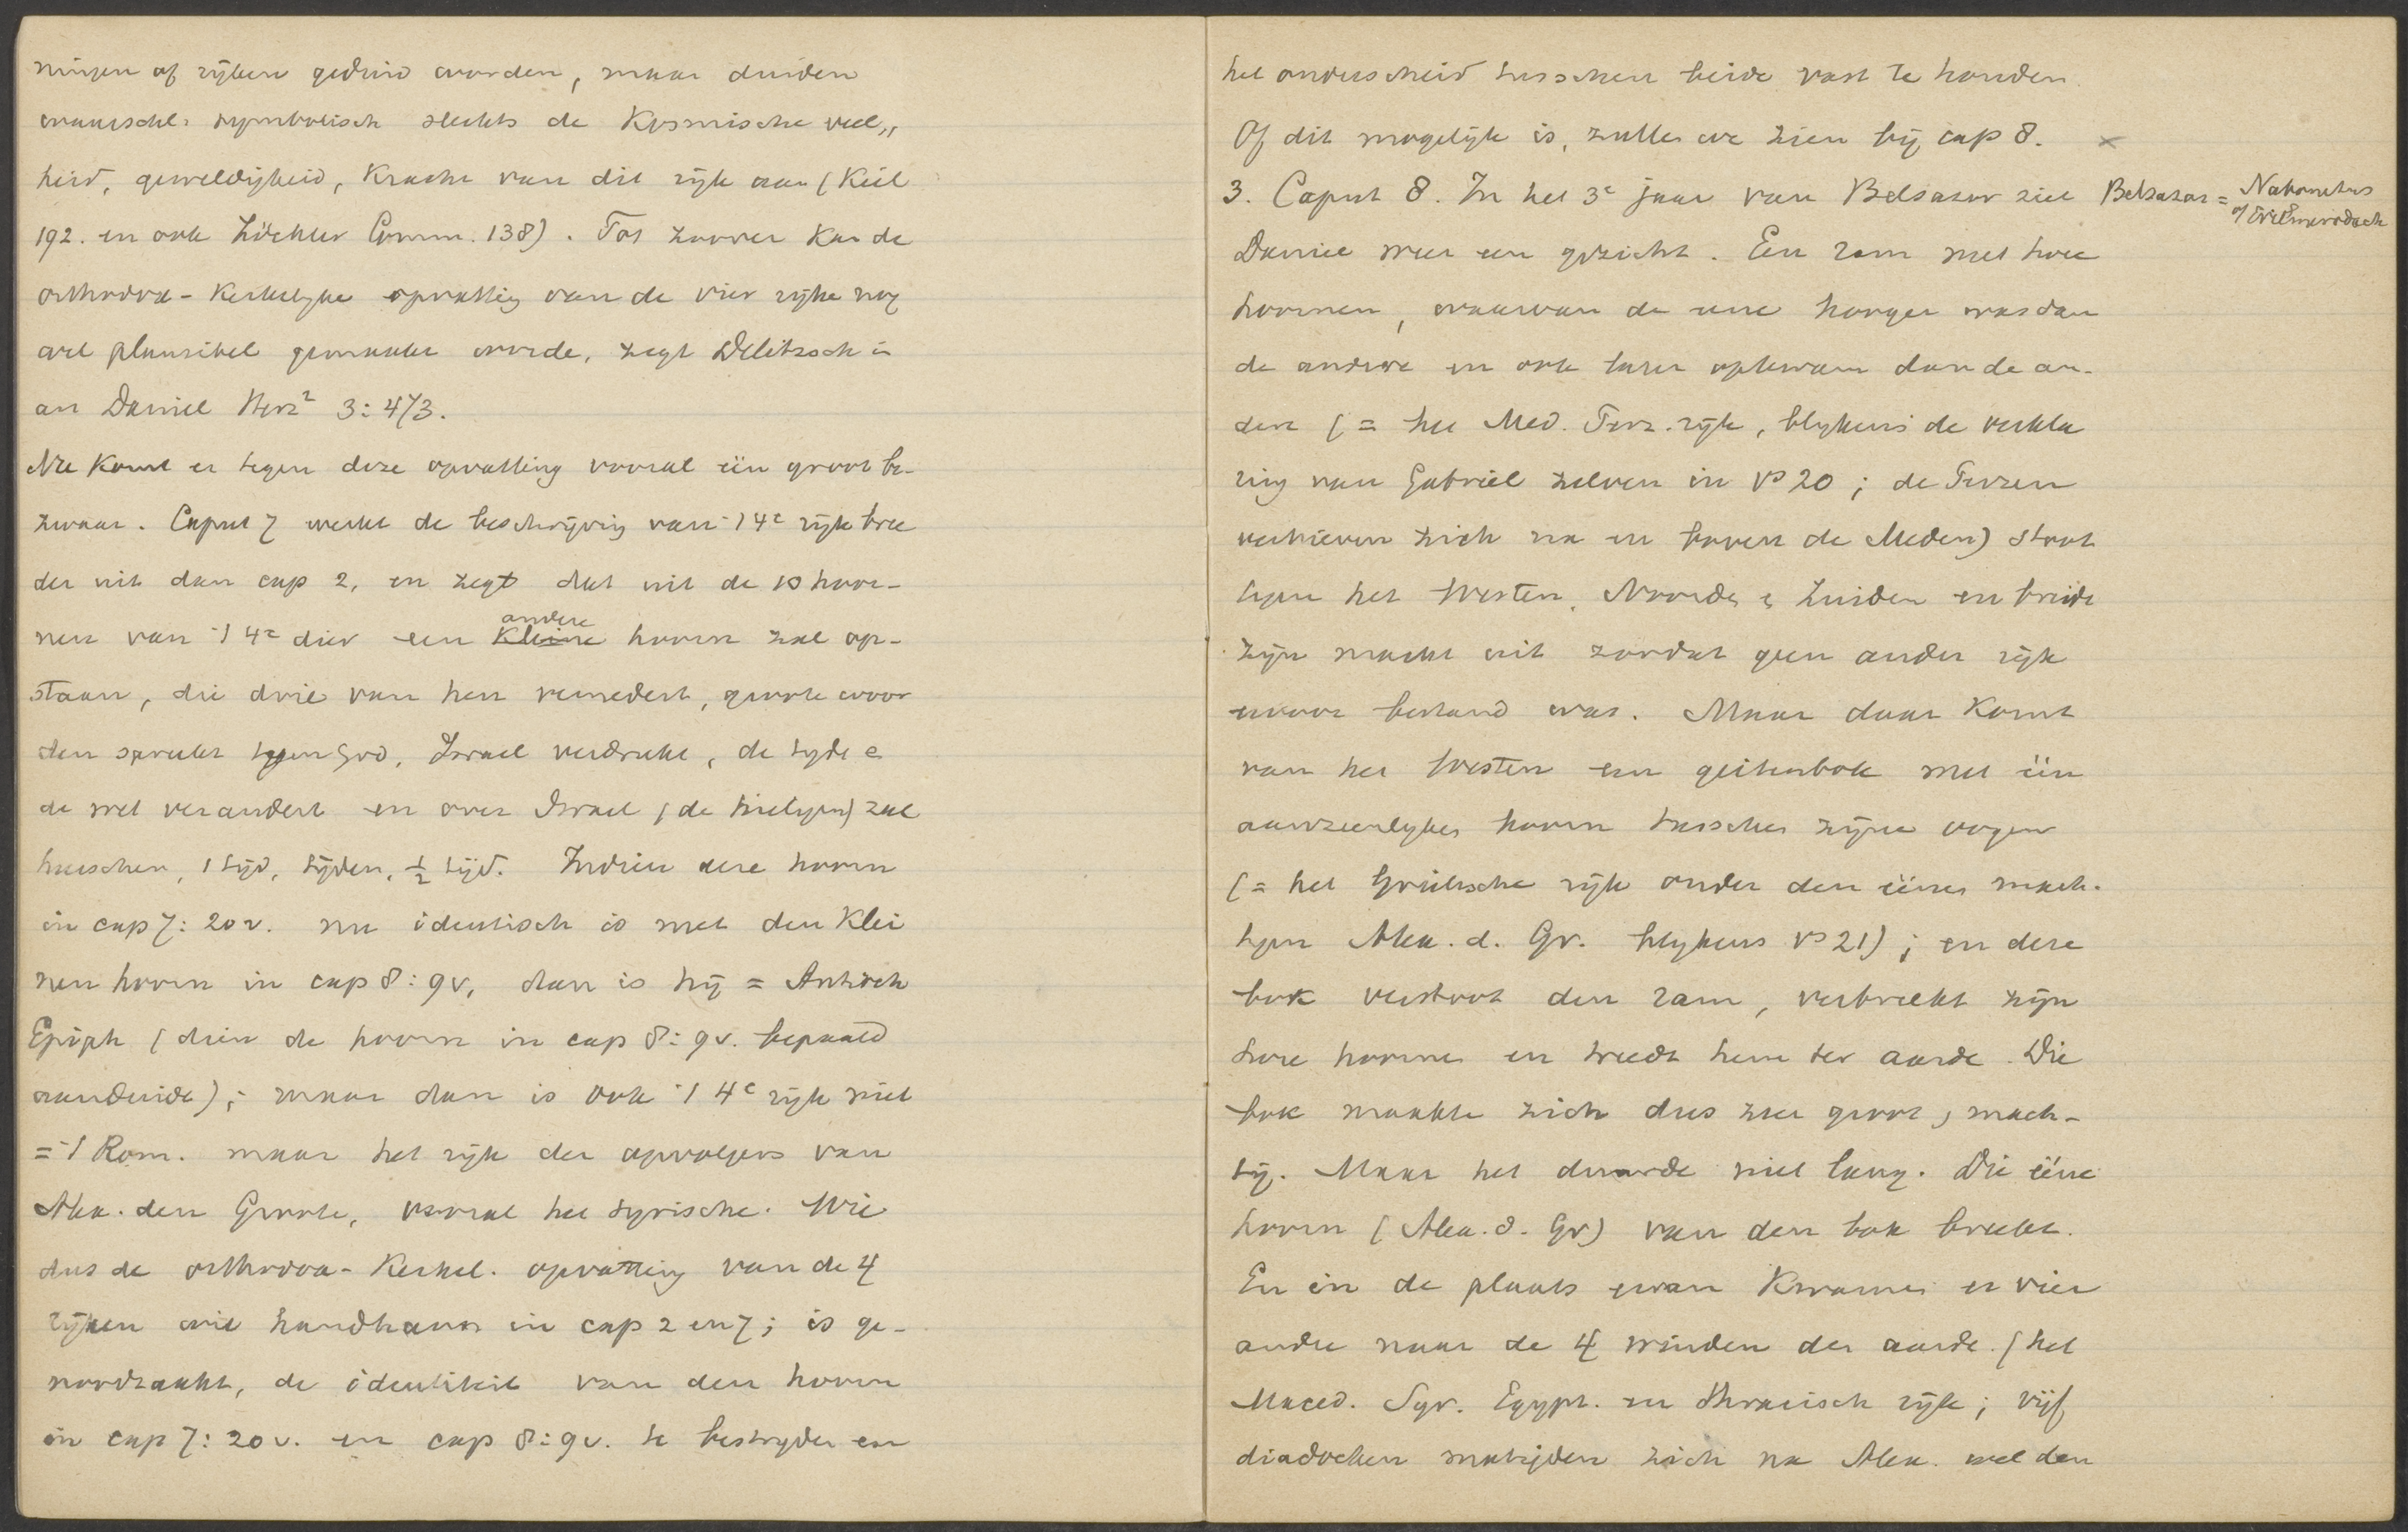 ningen of rijken geduid worden, maar duiden
waarschl. symbolisch slechts de Kosmische veel„
heid, geweldigheid, Kracht van dit rijk aan (Keil
192. en ook Zöckler Comm. 138). Tot zoover kan de
orthodox-Kerkelijke opvatting van de vier rijke nog
wel plausibel gemaakt worde, zegt Delitzsch in
art Daniel Herz² 3:473.
Nu Komt er tegen deze opvatting vooral één groot be-
zwaar. Caput 7 werkt de beschrijving van 't 4e rijk bree
der uit dan cap 2, en zegt dat uit de 10 hoor-
nen van 't 4e dier een Kleine andere hoorn zal op-
staan, die drie van hen vernedert, groote woor
den spreekt tegen God, Israel verdrukt, de tyde e
de wet verandert en over Israel (de heiligen) zal
heerschen, 1 tijd, tijden, ½ tijd. Indien deze hoorn
in cap 7:20v. nu identisch is met den Klei
nen hoorn in cap 8:9v, dan is hij = Antioch
Epiph (dien de hoorn in cap 8:9v. bepaald
aanduidt); maar dan is ook 't 4e rijk niet
= 't Rom. maar het rijk der opvolgers van
Alex. den Groote, vooral het syrische. Wie
dus de orthodox-Kerkel. opvatting van de 4
rijken wil handhaven in cap 2 en 7; is ge-
noodzaakt, de identiteit van den hoorn
in cap 7:20v. en cap 8:9v. te bestryden en
het onderscheid tusschen beide vast te houden
Of dit mogelijk is, zullen we zien bij cap 8. ×
3. Caput 8. In het 3e jaar van Belsazar ziet
Belsazar = Nabonetus
of Evilmerodach
Daniel weer een gezicht. Een ram met twee
hoornen, waarvan de eene hooger was dan
de andere en ook later opkwam dan de an-
dere (= het Med. Perz. rijk, blijkens de verkla
ring van Gabriel zelven in vs 20; de Perzen
verhieven zich na en boven de Meden) stoot
tegen het Westen, Noorde e Zuiden en breide
zijn macht uit zoodat geen ander rijk
ervoor bestand was. Maar daar Komt
van het Westen een geitenbok met één
aanzienlyken hoorn tusschen zijne oogen
(= het Grieksche rijk onder den éénen mach-
tigen Alex. d. Gr. blijkens vs 21); en deze
bok verstoot den ram, verbreekt zijn
twee hoornen en treedt hem ter aarde. Die
bok maakte zich dus zeer groot, mach-
tig. Maar het duurde niet lang. Die ééne
hoorn (Alex. d. Gr) van den bok breekt.
En in de plaats ervan Kwamen er vier
andre naar de 4 winden der aarde. (het
Maced. Syr. Egypt. en Thracisch rijk; vijf
diadochen matigden zich na Alex. wel den